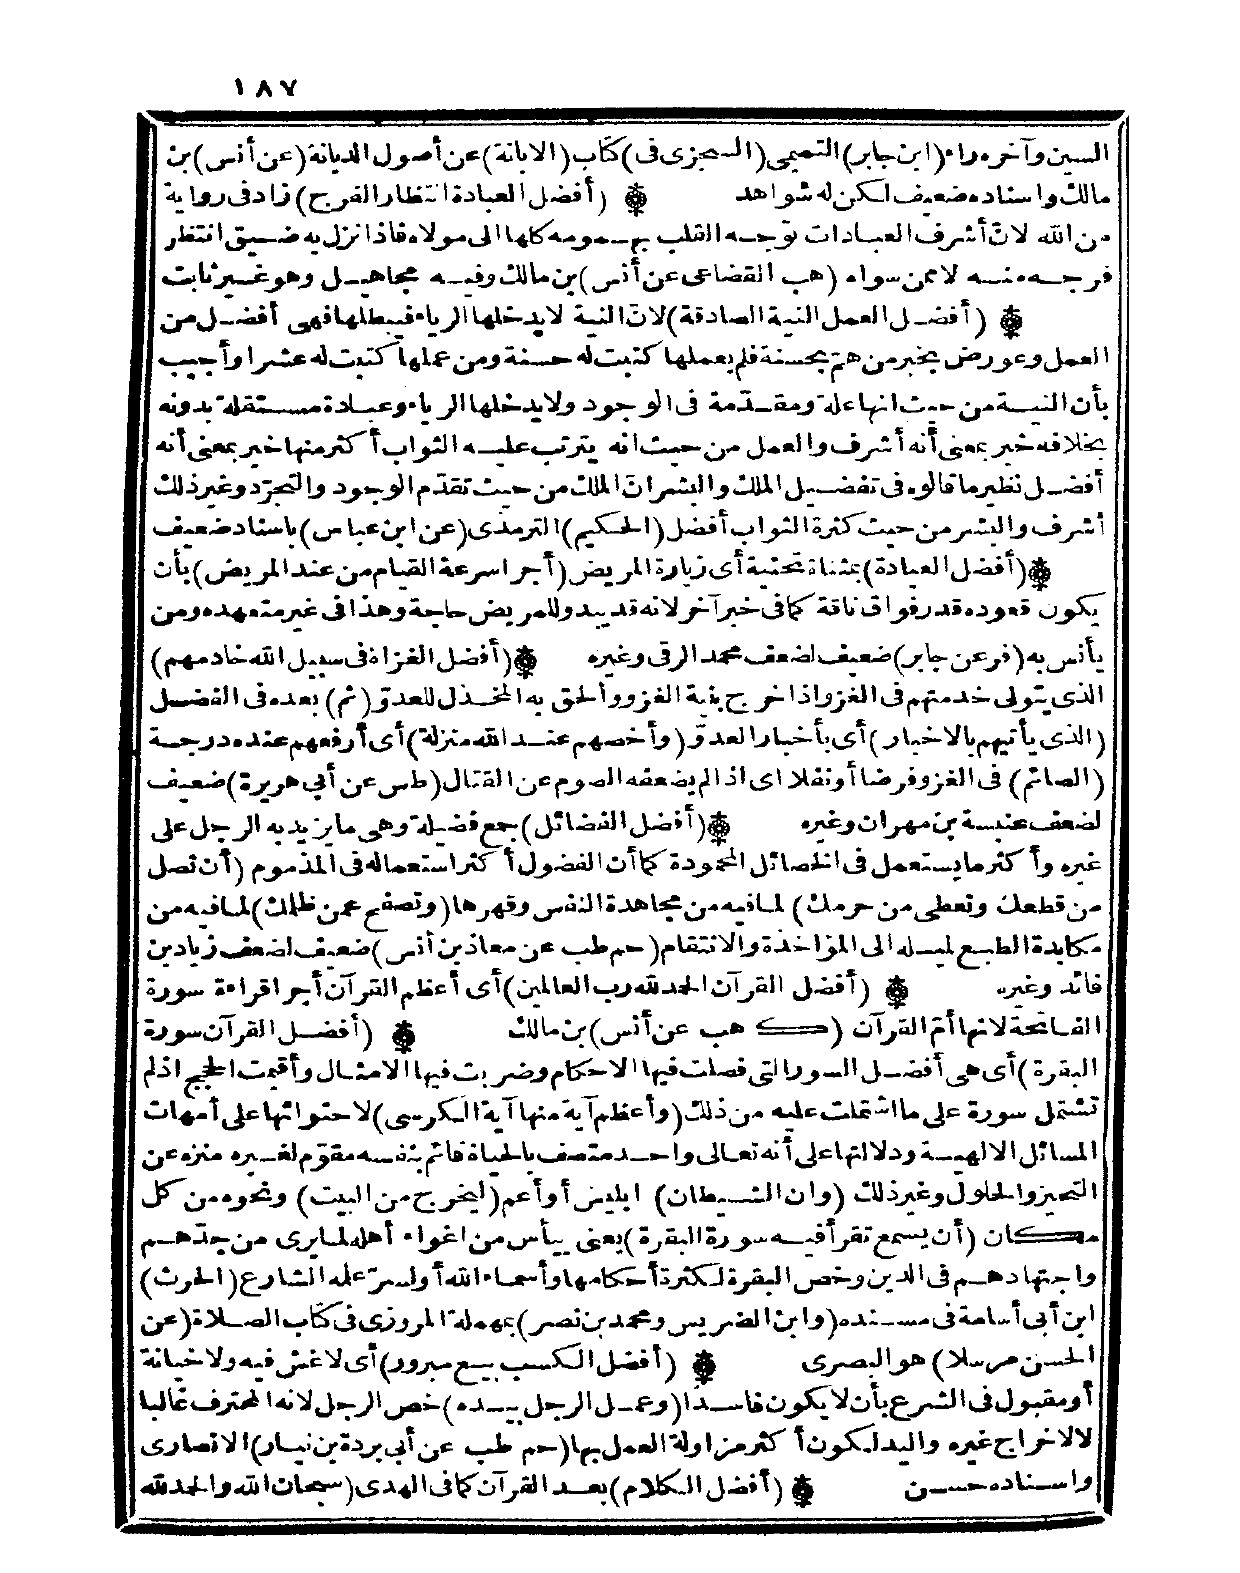 ١٨٧
السين وآخره راء (ابن جابر) التميمى (السجزى فى) كتاب (الابانة) عن أصول الديانة (عن أنس) بن
مالك واسناده ضعيف لكن له شواهد (أفضل العبادة انتظار الفرج) زاد فى رواية
من الله لانّ أشرف العبادات توّجه القلب بهمومه كلها الى مولاه فاذا نزل به ضيق انتظر
فرجه منه لا ممن سواه (هب القضاعى عن أنس) بن مالك وفيه مجاهيل وهو غير ثابت
(أفضل العمل النية الصادقة) لانّ النية لا يدخلها الرياء فيبطلها فهى أفضل من
العمل وعورض بخبر من همّ بحسنة فلم يعملها كتبت له حسنة ومن عملها كتبت له عشرا وأجيب
بأن النية من حيث انها علة ومقدّمة فى الوجود ولا يدخلها الرياء وعبادة مستقلة بدونه
بخلافه خير بمعنى أنه أشرف والعمل من حيث انه يترتب عليه الثواب أكثر منها خير بمعنى أنه
أفضل نظير ما قالوه فى تفضيل الملك والبشر انّ الملك من حيث تقدّم الوجود والتجرّد وغير ذلك
أشرف والبشر من حيث كثرة الثواب أفضل (الحكيم) الترمذى (عن ابن عباس) باسناد ضعيف
(أفضل العيادة) بمثناة تحتية أى زيارة المريض (أجرا سرعة القيام من عند المريض) بأن
يكون قعوده قدر فواق ناقة كما فى خبر آخر لانه قد يبدو للمريض حاجة وهذا فى غير متعهده ومن
يأنس به (فر عن جابر) ضعيف لضعف محمد الرقى وغيره (أفضل الغزاة فى سبيل الله خادمهم)
الذى يتولى خدمتهم فى الغزو اذا خرج بنية الغزو وألحق به المخذل للعدوّ (ثم) بعده فى الفضل
(الذى يأتيهم بالاخبار) أى بأخبار العدوّ (وأخصهم عند الله منزلة) أى أرفعهم عنده درجة
(الصائم) فى الغزو فرضا أو نفلا اى اذا لم يضعفه الصوم عن القتال (طس عن أبى هريرة) ضعيف
لضعف عنبسة بن مهران وغيره (أفضل الفضائل) جمع فضيلة وهى ما يزيد به الرجل على
غيره وأكثر ما يستعمل فى الخصائل المحمودة كما أن الفضول أكثر استعماله فى المذموم (أن تصل
من قطعك وتعطى من حرمك) لما فيه من مجاهدة النفس وقهرها (وتصفح عمن ظلمك) لما فيه من
مكابدة الطبع لميله الى المؤاخذة والانتقام (حم طب عن معاذ بن أنس) ضعيف لضعف زياد بن
فائد وغيره (أفضل القرآن الحمد لله رب العالمين) أى أعظم القرآن أجرا قراءة سورة
الفاتحة لانها أمّ القرآن (ك هب عن أنس) بن مالك (أفضل القرآن سورة
البقرة) أى هى أفضل السور التى فصلت فيها الاحكام وضربت فيها الامثال وأقيمت الحجج اذ لم
تشتمل سورة على ما اشتملت عليه من ذلك (وأعظم آية منها آية الكرسى) لاحتوائها على أمهات
المسائل الالهية ودلالتها على أنه تعالى واحد متصف بالحياة قائم بنفسه مقوّم لغيره منزه عن
التحيز والحلول وغير ذلك (وان الشيطان) ابليس أو أعم (ليخرج من البيت) ونحوه من كل
مكان (أن يسمع تقرأ فيه سورة البقرة) يعنى ييأس من اغواء أهله لما يرى من جدّهم
واجتهادهم فى الدين وخص البقرة لكثرة أحكامها وأسماء الله أو لسرّ علمه الشارع (الحرث)
ابن أبى أسامة فى مسنده (وابن الضريس ومحمد بن نصر) بمهملة المروزى فى كتاب الصلاة (عن
الحسن مرسلا) هو البصرى (أفضل الكسب بيع مبرور) أى لا غش فيه ولا خيانة
أو مقبول فى الشرع بأن لا يكون فاسدا (وعمل الرجل بيده) خص الرجل لانه المحترف غالبا
لا لاخراج غيره واليد ليكون أكثر مزاولة العمل بها (حم طب عن أبى بردة بن نيار) الانصارى
واسناده حسن (أفضل الكلام) بعد القرآن كما فى الهدى (سبحان الله والحمد لله